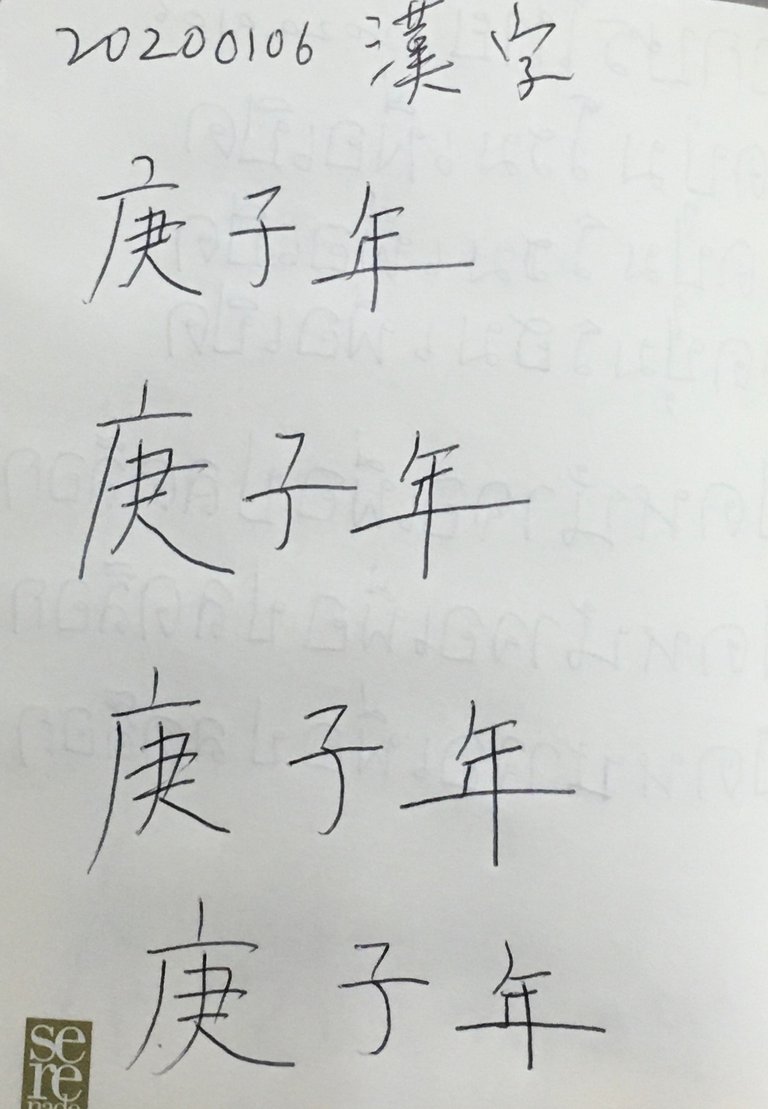 20200106 漢字
庚子年
庚子年
庚子年
庚子年
se
re
nade